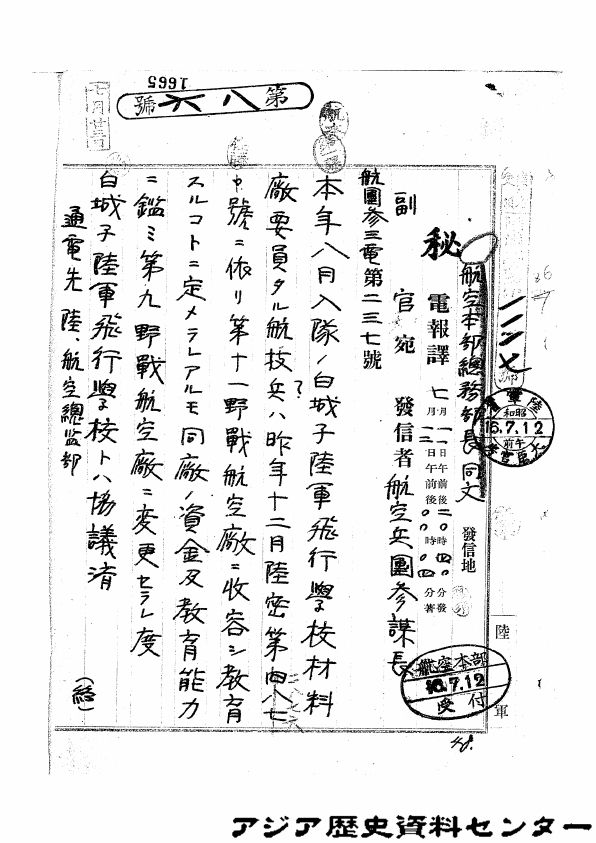 1665
第八六號
航空本部總務部長同文
秘
電報譯
七月一一日午前後二〇時四〇分發
七月一二日午前後〇〇時〇四分著
發信地
副官宛
發信者航空兵團參謀長
航團參三電第二三七號
本年八月入隊ノ白城子陸軍飛行學校材料
廠要員タル航技兵ハ昨年十二月陸密第
號ニ依リ第十一野戰航空廠ニ收容シ教育
スルコトニ定メラレアルモ同廠ノ資金及教育能力
ニ鑑ミ第九野戰航空廠ニ変更セラレ度
白城子陸軍飛行學校トハ協議濟
通電先 陸、航空總監部
(終)
陸軍
昭和
16.7.12
午前
大臣官房
航空本部
16.7.12
受付
アジア歴史資料センター